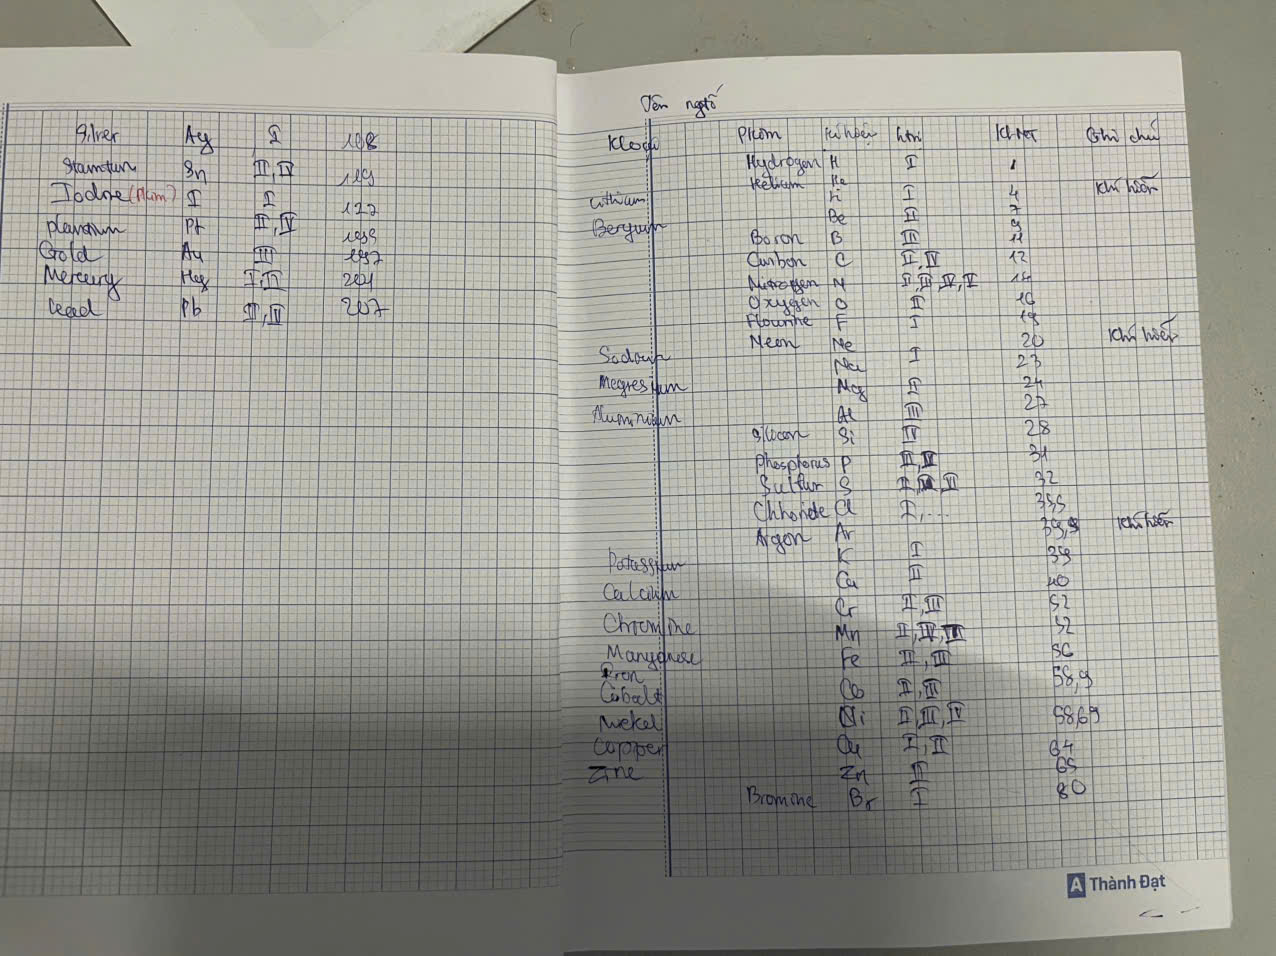 Silver Ag I 108
Stanntum Sn II, IV 119
Iodine (Phim) I I 127
Plantium Pt II, IV 195
Gold Au III 197
Mercury Hg I, II 201
Lead Pb II, IV 207
Tên ngtố
Kloại Phkim Kí hiệu htrị KLNGT Ghi chú
Hydrogen H I 1
Helium He 4 Khí hiếm
Lithium Li I 7
Beryium Be II 9
Boron B III 11
Carbon C II, IV 12
Nitrogen N 14
Oxygen O II 16
Flourine F I 19
Neon Ne 20 Khí hiếm
Sodium Na I 23
Megresium Mg II 24
Aluminium Al III 27
Silicon Si IV 28
Phosphorus P 31
Sulfur S 32
Chloride Cl I,... 35,5
Argon Ar 39,9 Khí hiếm
Potassium K I 39
Calcium Ca II 40
Chromine Cr II, III 52
Manganese Mn II, IV, VII 52
Iron Fe II, III 56
Cobalt Co II, III 58,9
Nickel Ni II, III, IV 58,69
Copper Cu I, II 64
Zinc Zn II 65
Bromine Br I 80
A Thành Đạt